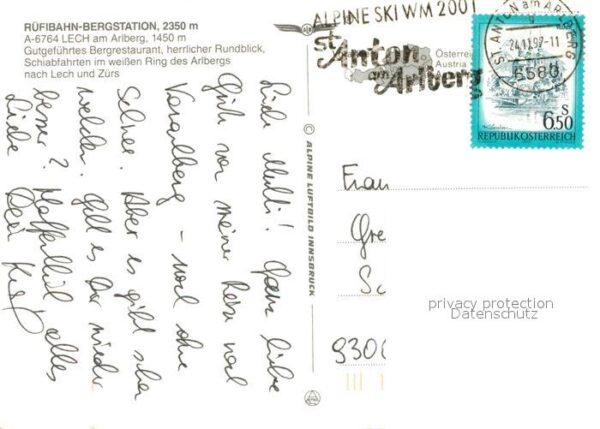 RÜFIBAHN-BERGSTATION, 2350 m
A-6764 LECH am Arlberg, 1450 m
Gutgeführtes Bergrestaurant, herrlicher Rundblick,
Schiabfahrten im weißen Ring des Arlbergs
nach Lech und Zürs
ALPINE SKI WM 2001
St. Anton
am Arlberg
Österreich
Austria
ST. ANTON am ARLBERG
24.11.97-11
6580
S
6.50
REPUBLIK ÖSTERREICH
© ALPINE LUFTBILD INNSBRUCK
Liebe Mutti! Ganz liebe
Grüße von meiner Reise nach
Vorarlberg – noch ohne
Schnee. Aber es gibt schon
welchen. Geht es Dir wieder
besser? Hoffentlich alles
Liebe Dein
Frau
Gre
930
privacy protection
Datenschutz